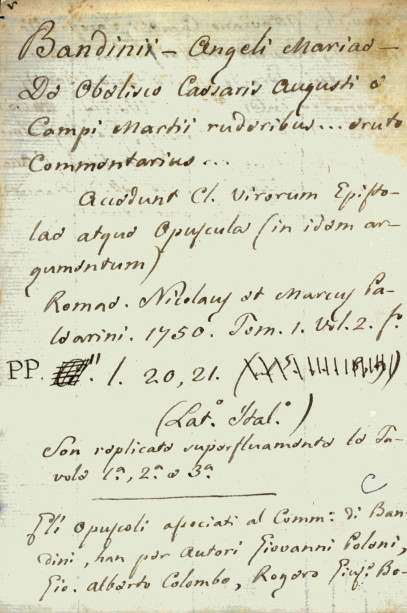 Bandinii - Angeli Mariae -
De Obelisco Caesaris Augusti e
Campi Martii ruderibus... eruto
Commentarius...
Accedunt Cl. Virorum Episto-
lae atque Opuscula (in idem ar-
gumentum)
Romae. Nicolaus et Marcus Pa-
learini. 1750. Tom. 1. Vol. 2. fo.
PP. l. 20, 21.
(Lat.º Ital.º)
Son replicate superfluamente le Ta-
vole 1ª, 2ª e 3ª
C
Gli Opuscoli associati al Comm: di Ban-
dini, han per Autori Giovanni Poleni,
Gio. Alberto Colombo, Rogero Gius. Bo-